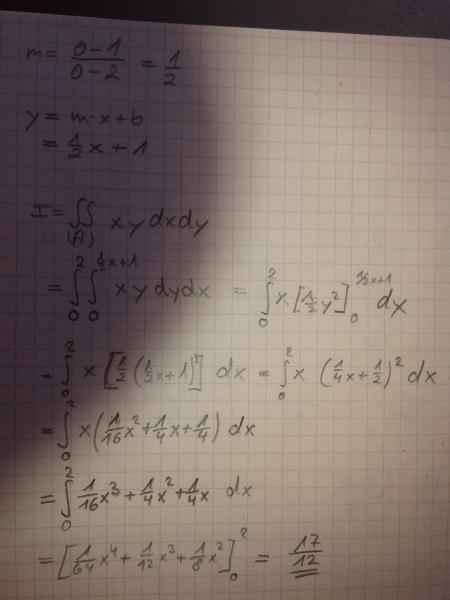 m = (0-1)/(0-2) = 1/2
y = m·x+b
= 1/2 x + 1
I = ∬_(A) x y dx dy
= ∫_0^2 ∫_0^(1/2 x+1) x y dy dx = ∫_0^2 x [1/2 y²]_0^(1/2 x+1) dx
= ∫_0^2 x [1/2 (1/2 x+1)²] dx = ∫_0^2 x (1/4 x + 1/2)² dx
= ∫_0^2 x (1/16 x² + 1/4 x + 1/4) dx
= ∫_0^2 1/16 x³ + 1/4 x² + 1/4 x dx
= [1/64 x⁴ + 1/12 x³ + 1/8 x²]_0^2 = 17/12